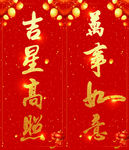 萬事如意
吉星高照